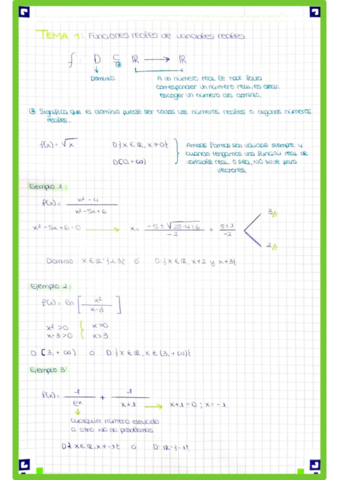 TEMA 1: Funciones reales de variables reales
f : D ⊆ ℝ → ℝ
Dominio
A un número real le hace
corresponder un número real, es decir,
escoger un número del dominio.
Significa que el dominio puede ser todos los números reales o algunos números
reales.
f(x) = √x
D{x ∈ ℝ, x ≥ 0}
D[0, +∞)
Ambas formas son válidas siempre y
cuando tengamos una función real de
variable real, o sea, NO sirve para
vectores.
Ejemplo 1:
f(x) = x² - 4 / x² - 5x + 6
x² - 5x + 6 = 0 → x =
= 5 ± 1 / -2
3
2
Dominio x ∈ ℝ - {2, 3} o D{x ∈ ℝ, x ≠ 2 y x ≠ 3}
Ejemplo 2:
f(x) = ln [x² / x - 3]
x² > 0 } x > 0
x - 3 > 0 } x > 3
D (3, +∞) o D {x ∈ ℝ, x ∈ (3, +∞)}
Ejemplo 3:
f(x) = 1 / eˣ + 1 / x + 1 → x + 1 = 0; x = -1
Cualquier número elevado
a otro no da problemas
D{x ∈ ℝ, x ≠ -1} o D: ℝ - {-1}